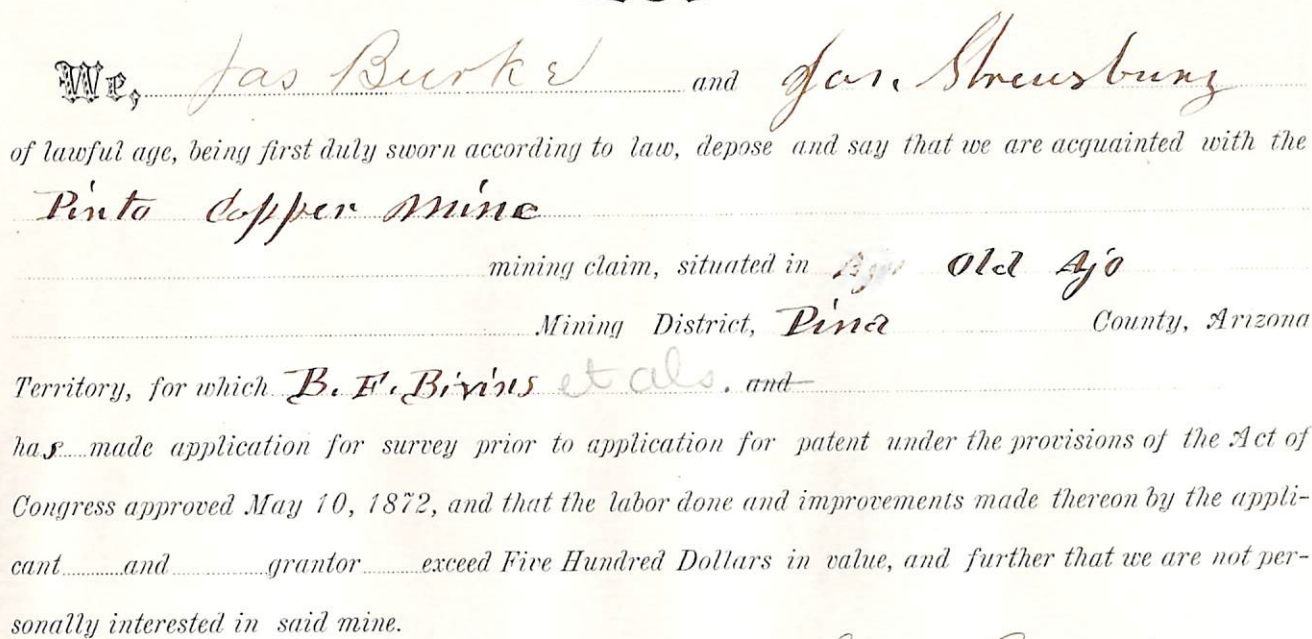 We, Jas Burke and Jas. Strewsburg
of lawful age, being first duly sworn according to law, depose and say that we are acquainted with the
Pinto Copper Mine
mining claim, situated in Old Ajo
Mining District, Pima County, Arizona
Territory, for which B. F. Bivins et als. and
has made application for survey prior to application for patent under the provisions of the Act of
Congress approved May 10, 1872, and that the labor done and improvements made thereon by the appli-
cant and grantor exceed Five Hundred Dollars in value, and further that we are not per-
sonally interested in said mine.